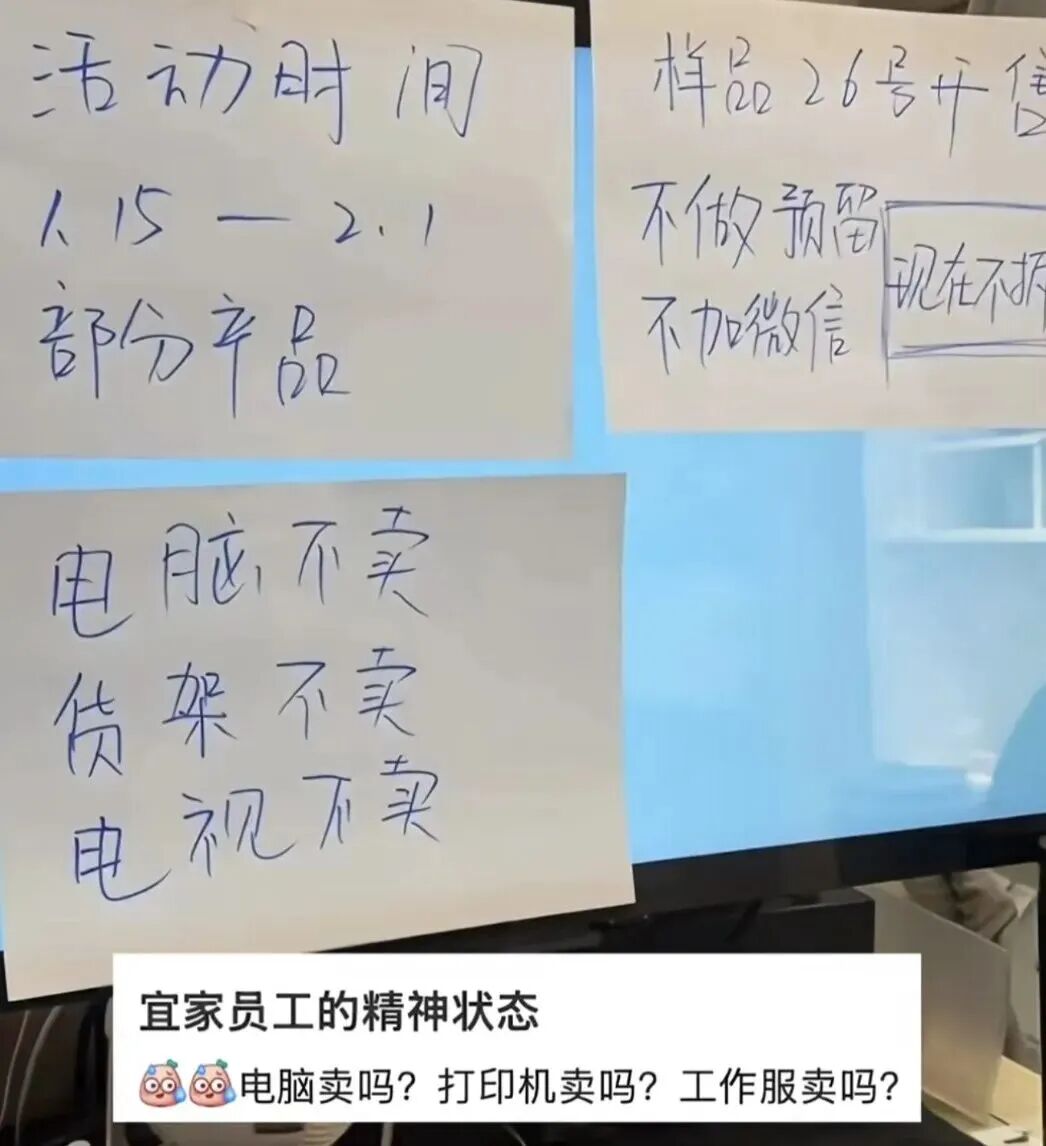 活动时间
1.15 — 2.1
部分产品
样品26号开售
不做预留
不加微信
现在不拆
电脑不卖
货架不卖
电视不卖
宜家员工的精神状态
电脑卖吗？打印机卖吗？工作服卖吗？